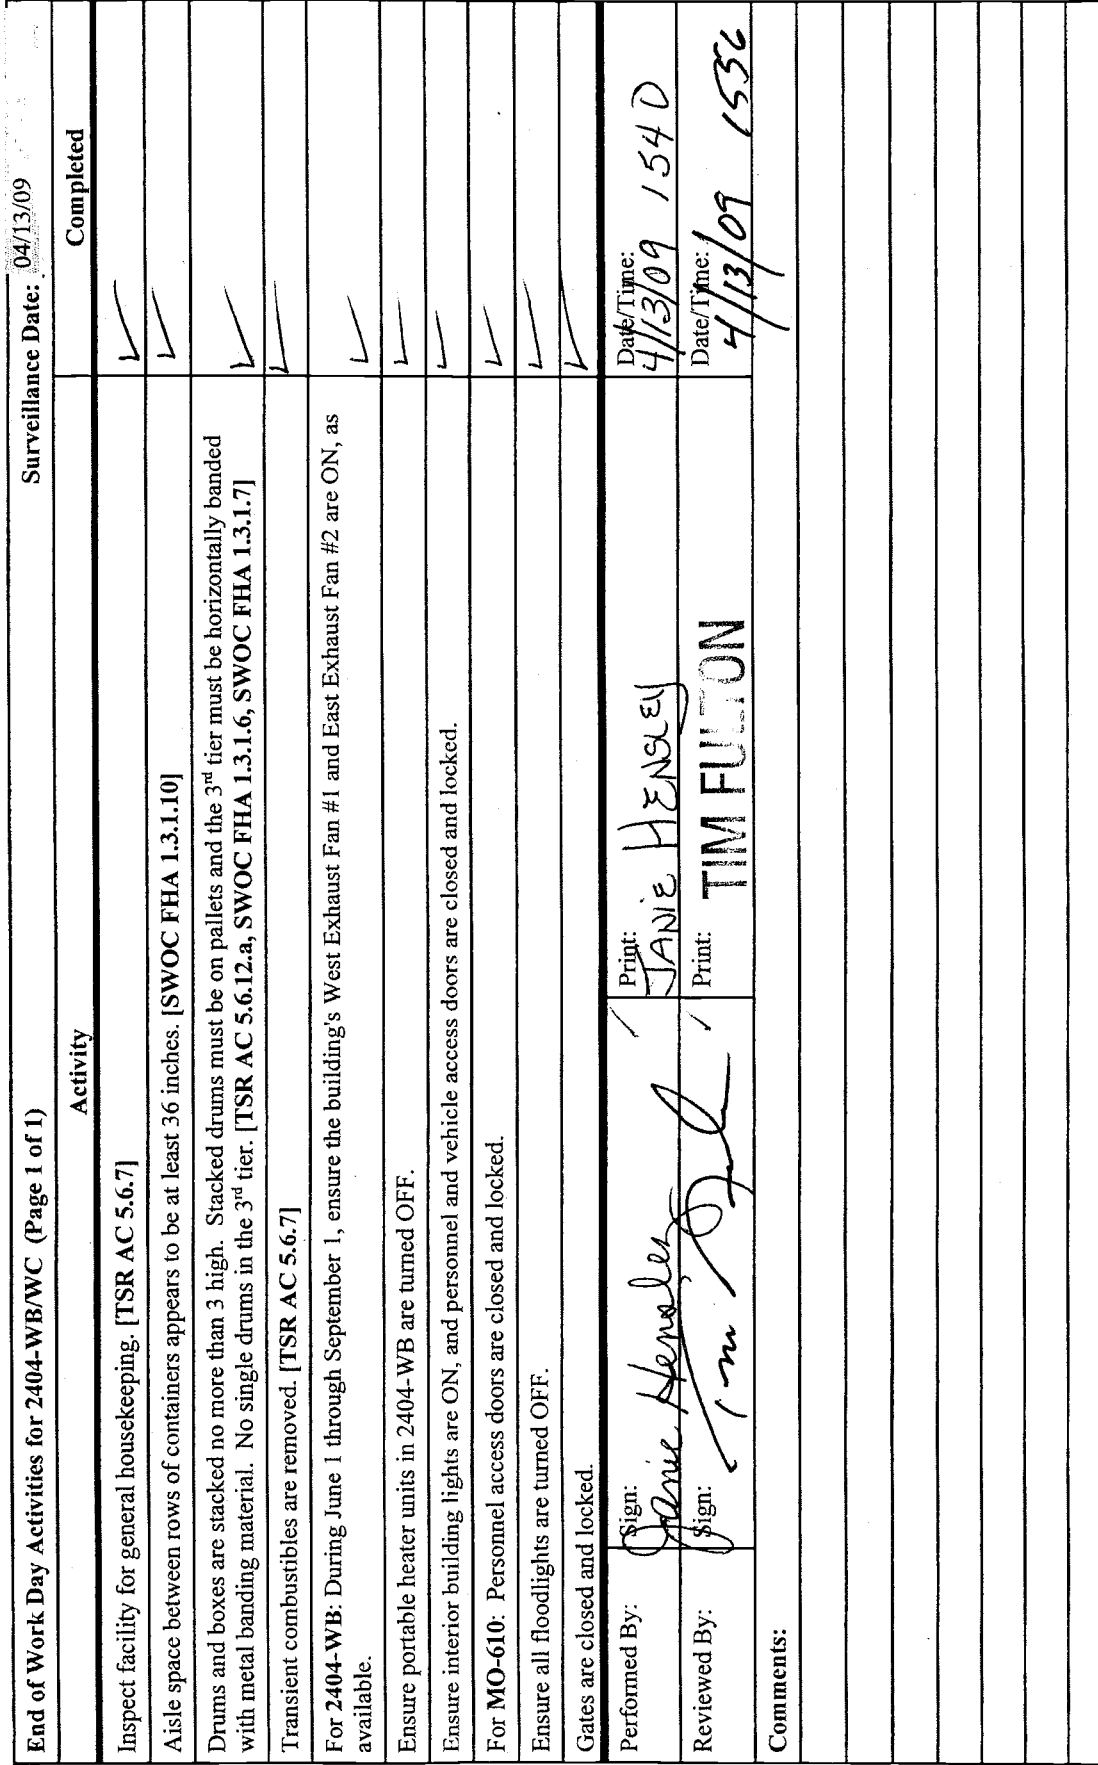 End of Work Day Activities for 2404-WB/WC (Page 1 of 1) Surveillance Date: 04/13/09
Activity Completed
Inspect facility for general housekeeping. [TSR AC 5.6.7] ✓
Aisle space between rows of containers appears to be at least 36 inches. [SWOC FHA 1.3.1.10] ✓
Drums and boxes are stacked no more than 3 high. Stacked drums must be on pallets and the 3rd tier must be horizontally banded
with metal banding material. No single drums in the 3rd tier. [TSR AC 5.6.12.a, SWOC FHA 1.3.1.6, SWOC FHA 1.3.1.7] ✓
Transient combustibles are removed. [TSR AC 5.6.7] ✓
For 2404-WB: During June 1 through September 1, ensure the building's West Exhaust Fan #1 and East Exhaust Fan #2 are ON, as
available. ✓
Ensure portable heater units in 2404-WB are turned OFF. ✓
Ensure interior building lights are ON, and personnel and vehicle access doors are closed and locked. ✓
For MO-610: Personnel access doors are closed and locked. ✓
Ensure all floodlights are turned OFF. ✓
Gates are closed and locked. ✓
Performed By: Sign: Janie Hensley Print: JANIE HENSLEY Date/Time: 4/13/09 1540
Reviewed By: Sign: Print: TIM FULTON Date/Time: 4/13/09 1556
Comments: